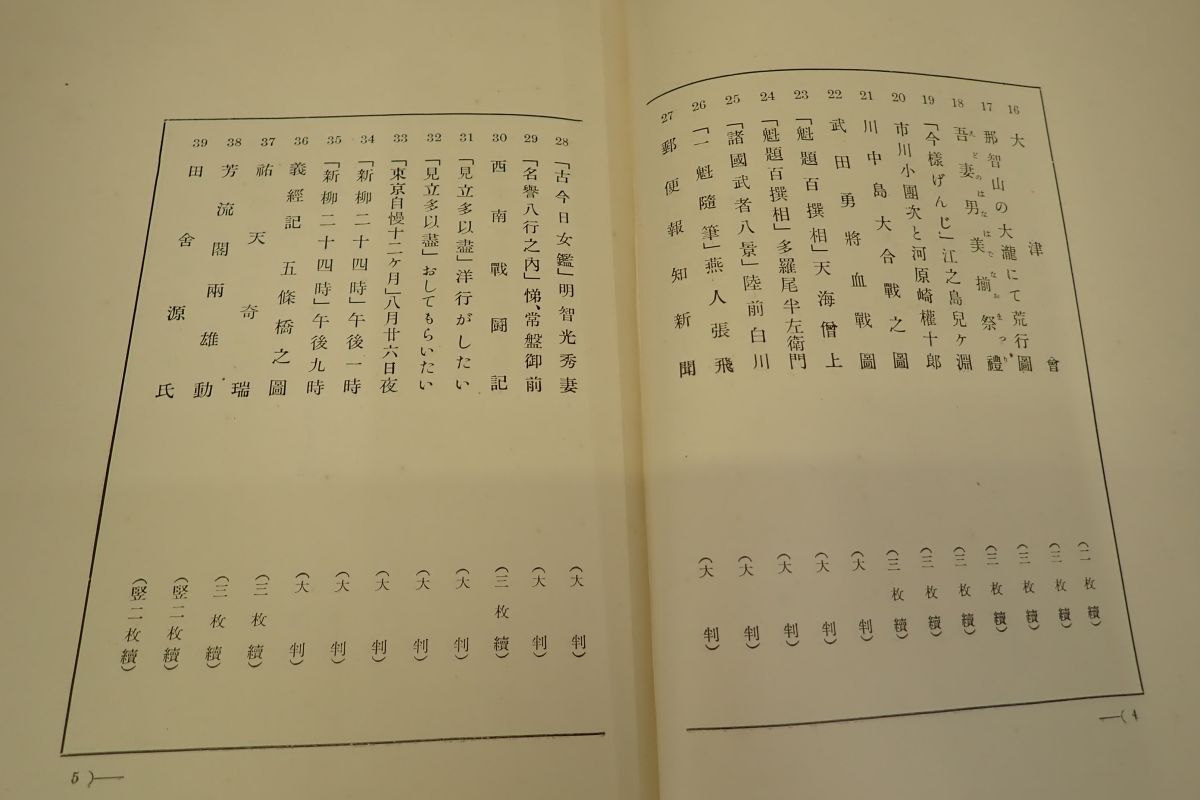 16 大津會 (二枚續)
17 那智山の大瀧にて荒行圖 (三枚續)
18 吾妻男美揃祭禮 (三枚續)
えどのはなはでなおまつり
19 「今樣げんじ」江之島兒ヶ淵 (三枚續)
20 市川小團次と河原崎權十郎 (三枚續)
21 川中島大合戰之圖 (三枚續)
22 武田勇將血戰圖 (三枚續)
23 「魁題百撰相」天海僧上 (大判)
24 「魁題百撰相」多羅尾半左衛門 (大判)
25 「諸國武者八景」陸前白川 (大判)
26 「一魁隨筆」燕人張飛 (大判)
27 郵便報知新聞 (大判)
—(4
28 「古今日女鑑」明智光秀妻 (大判)
29 「名譽八行之內」悌、常盤御前 (大判)
30 西南戰闘記 (三枚續)
31 「見立多以盡」洋行がしたい (大判)
32 「見立多以盡」おしてもらいたい (大判)
33 「東京自慢十二ヶ月」八月廿六日夜 (大判)
34 「新柳二十四時」午後一時 (大判)
35 「新柳二十四時」午後九時 (大判)
36 義經記五條橋之圖 (三枚續)
37 祐天奇瑞 (三枚續)
38 芳流閣兩雄動 (竪二枚續)
39 田舍源氏 (竪二枚續)
5)—